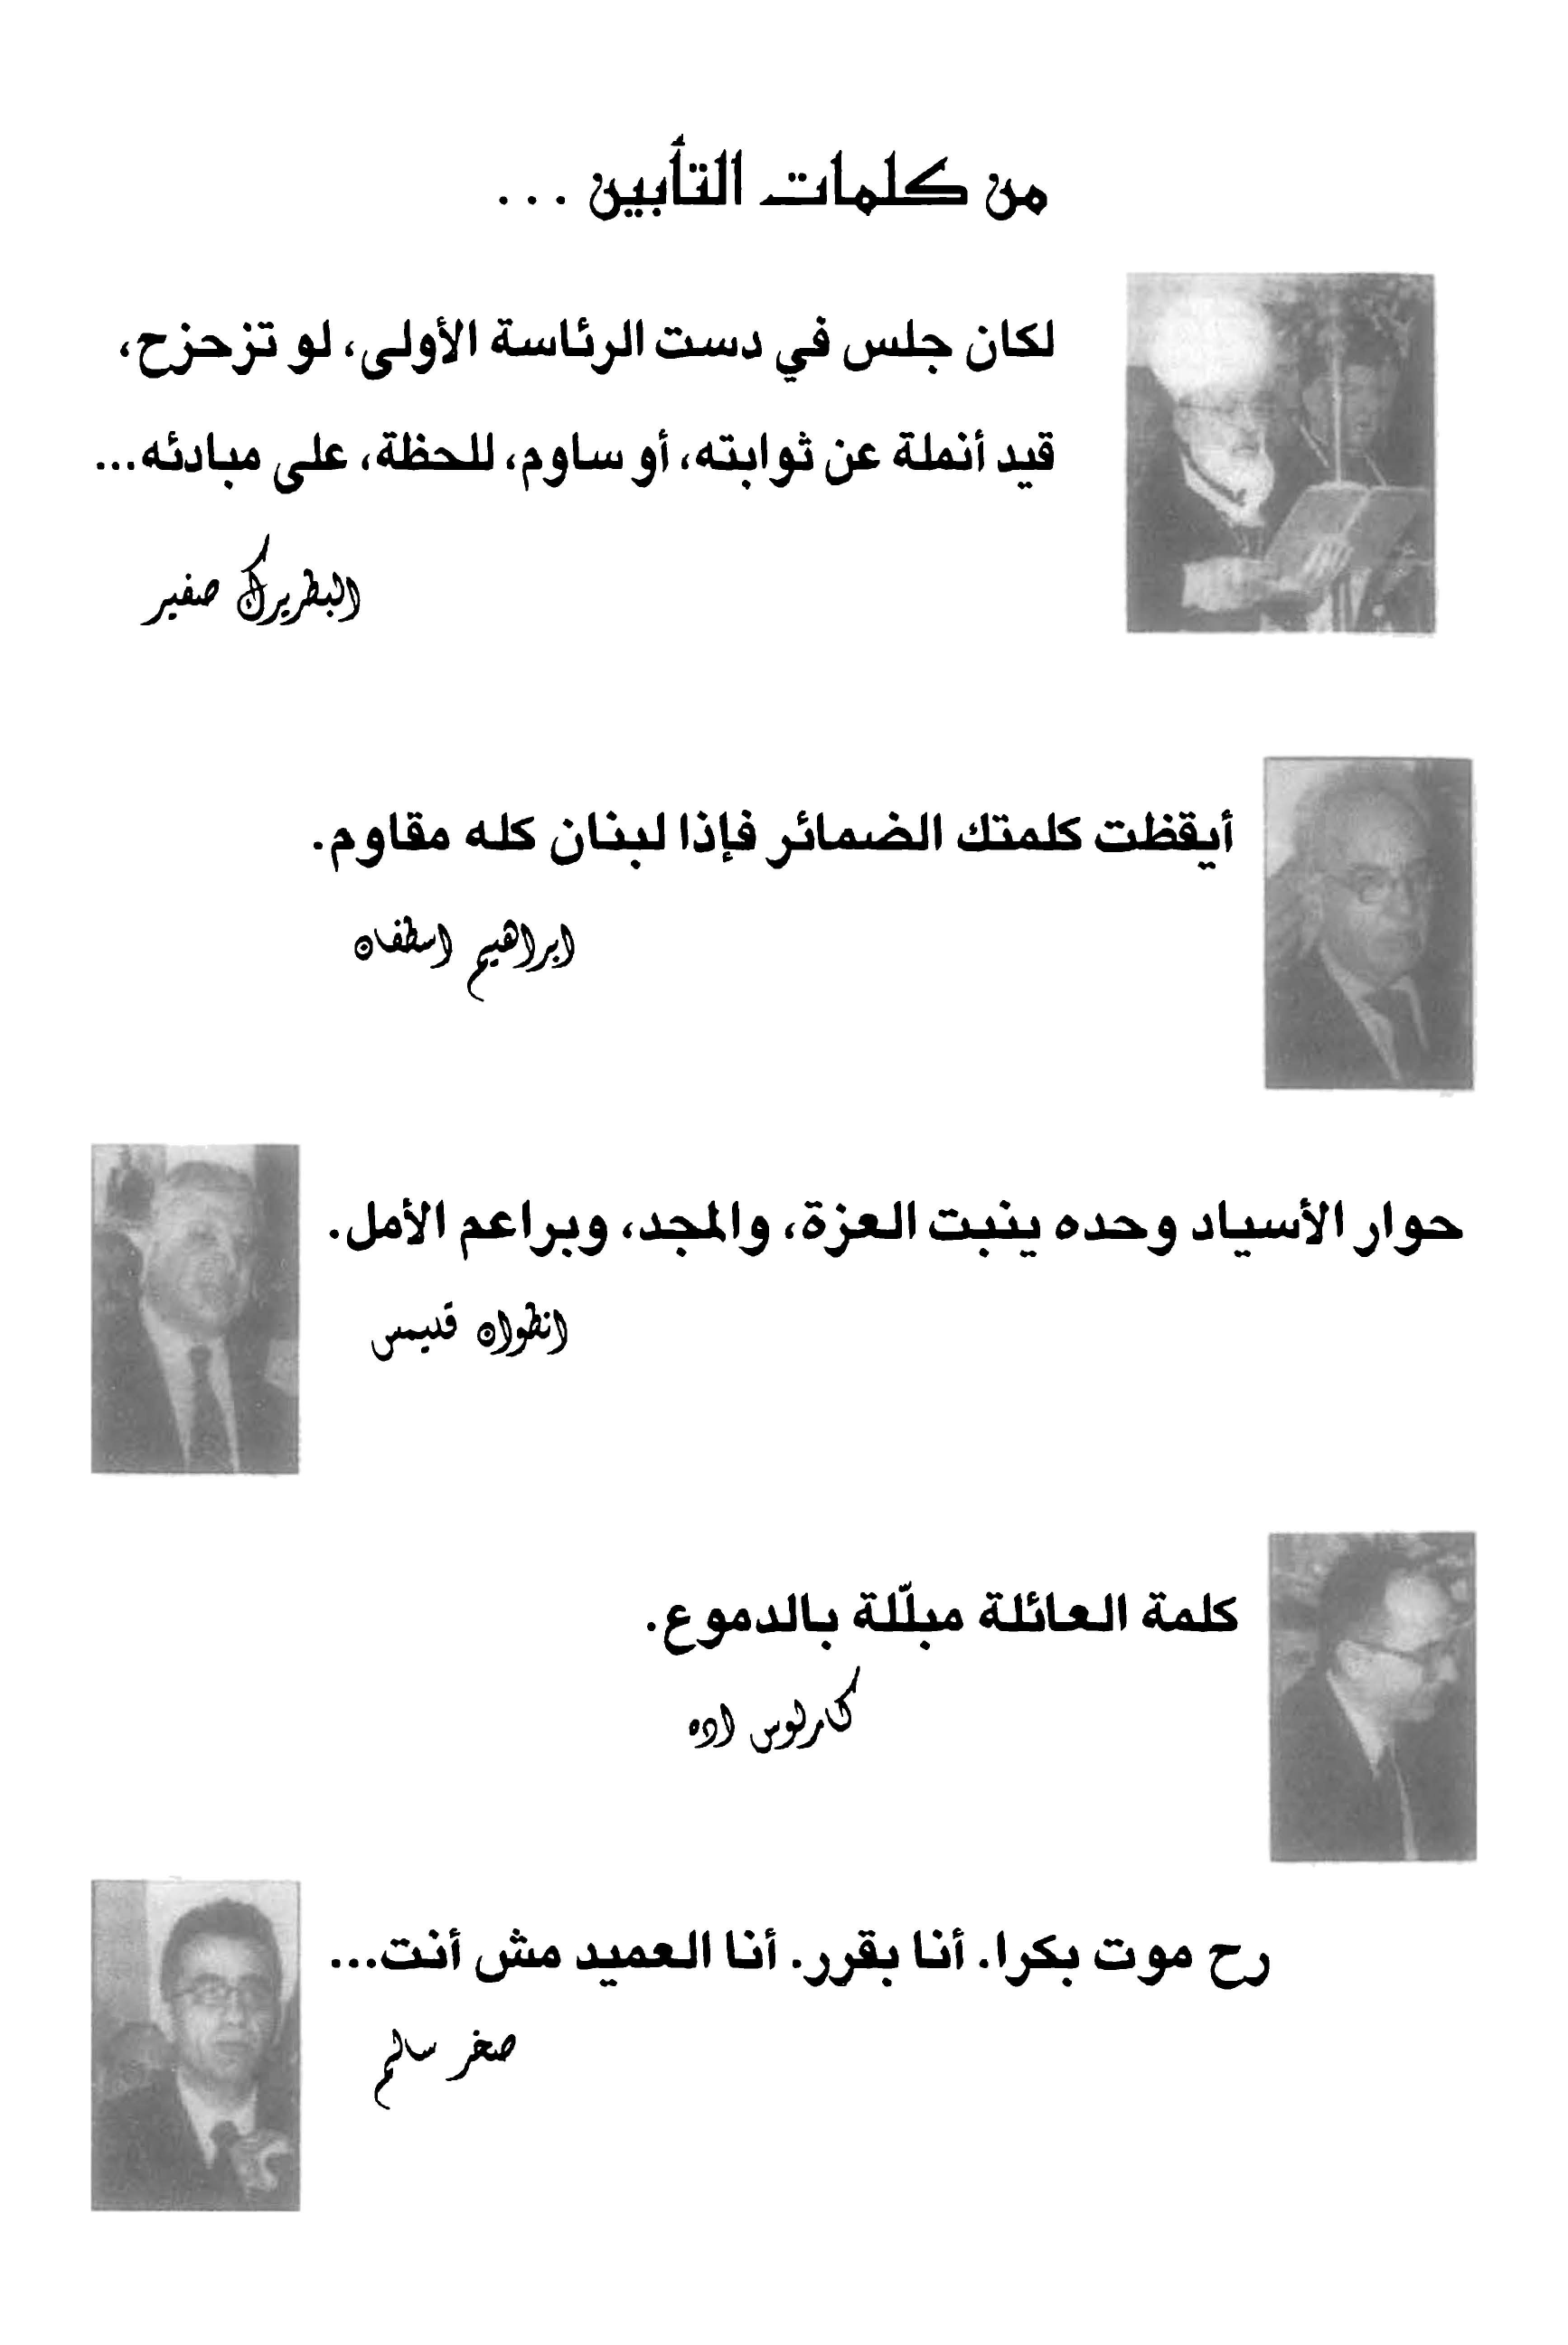 من كلمات التأبين ...
لكان جلس في دست الرئاسة الأولى، لو تزحزح،
قيد أنملة عن ثوابته، أو ساوم، للحظة، على مبادئه...
البطريرك صفير
أيقظت كلمتك الضمائر فإذا لبنان كله مقاوم.
ابراهيم اسطفان
حوار الأسياد وحده ينبت العزة، والمجد، وبراعم الأمل.
انطوان قليمس
كلمة العائلة مبلّلة بالدموع.
كارلوس اده
رح موت بكرا. أنا بقرر. أنا العميد مش أنت...
صخر سالم